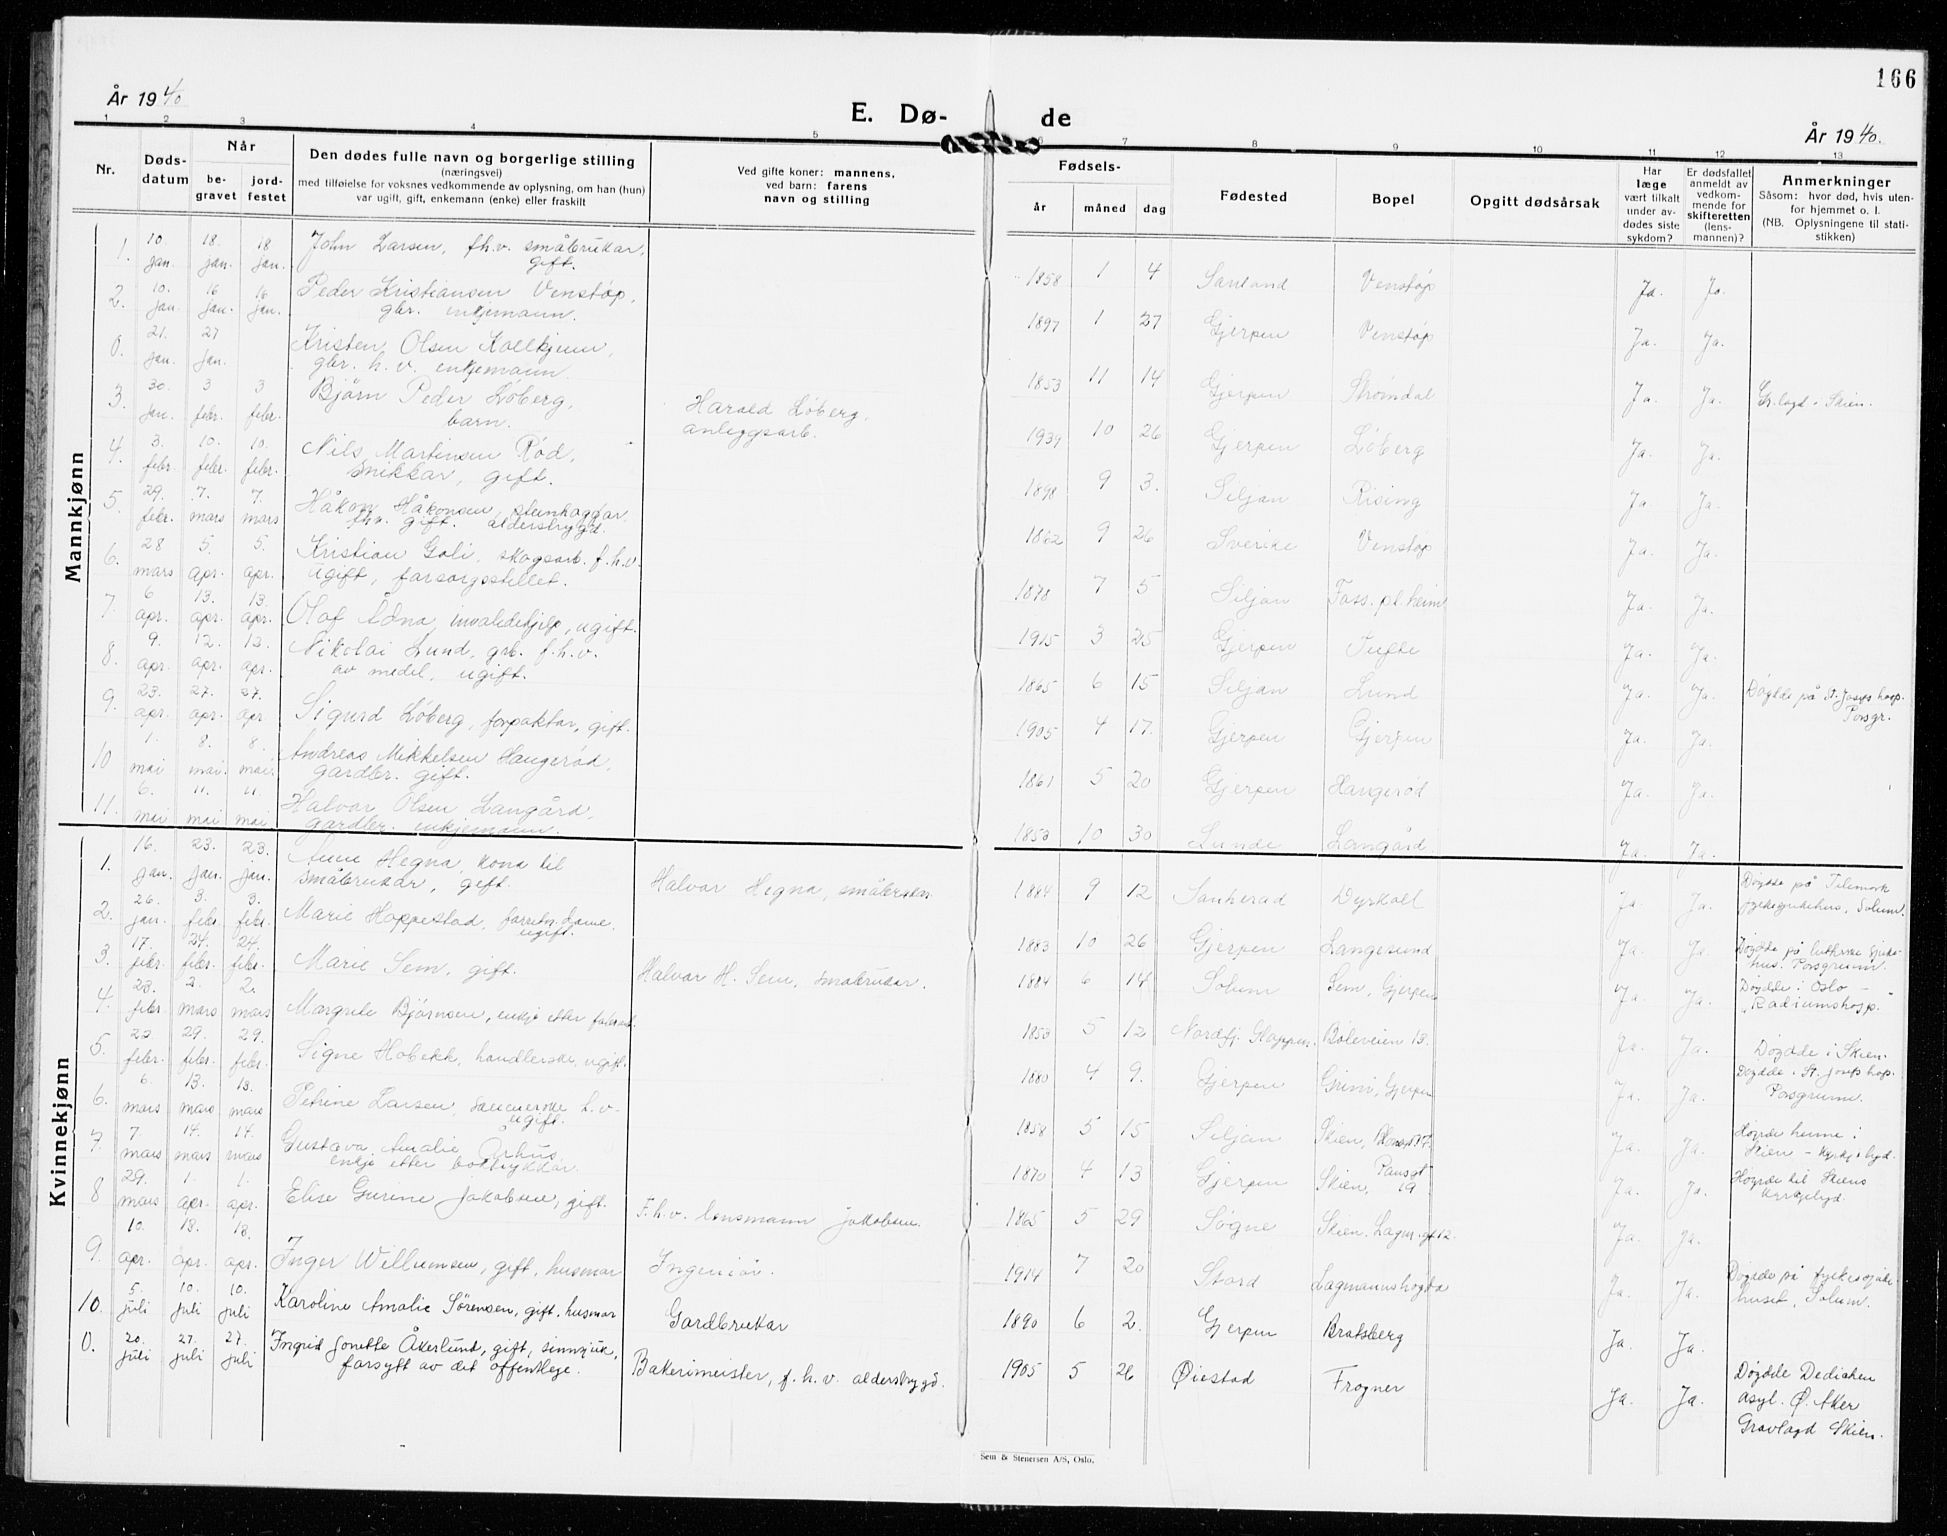 166
År 1940
E. Dø-
de
År 1940.
1 2 3 4 5 6 7 8 9 10 11 12 13
Nr.
Døds-
datum
Når
be-
gravet
jord-
festet
Den dødes fulle navn og borgerlige stilling
(næringsvei)
med tilføielse for voksnes vedkommende av oplysning, om han (hun)
var ugift, gift, enkemann (enke) eller fraskilt
Ved gifte koner: mannens,
ved barn: farens
navn og stilling
Fødsels-
år
måned
dag
Fødested
Bopel
Opgitt dødsårsak
Har
læge
vært tilkalt
under av-
dødes siste
sykdom?
Er dødsfallet
anmeldt av
vedkom-
mende for
skifteretten
(lens-
mannen)?
Anmerkninger
Såsom: hvor død, hvis uten-
for hjemmet o. l.
(NB. Oplysningene til stati-
stikken)
Mannkjønn
1. 10 jan. 18. jan. 18 jan. John Larsen, fh.v. småbrukar, gift. 1858 1 4 Sauland Venstøp Ja. Ja.
2. 10. jan. 16 jan. 16 jan. Peder Kristiansen Venstøp, gbr. enkjemann. 1897 1 27 Gjerpen Venstøp Ja. Ja.
0. 21. jan. 27 jan. Kristen Olsen gbr. h.v. enkjemann. 1853 11 14 Gjerpen Strømdal Ja. Ja. i Skien.
3. 30. jan. 3 febr. 3 febr. Bjørn Peder Løberg, barn. Harald Løberg, anleggsarb. 1939 10 26 Gjerpen Løberg Ja. Ja.
4. 3. febr. 10. febr. 10. febr. Nils Martinsen Rød, snikkar, gift. 1898 9 3. Siljan Rising Ja. Ja.
5. 29. febr. 7. mars 7. mars Håkon Håkonsen, steinhoggar fhv. gift. alderstrygd. 1862 9 26 Sverike Venstøp Ja. Ja.
6. 28 mars 5. apr. 5. apr. Kristian Goli, skogsarb. f.h.v. ugift, forsorgsstellet. 1878 7 5 Siljan Foss. pl. heim Ja. Ja.
7. 6 apr. 13. apr. 13. apr. Olaf Ådna, invalidehjelp, ugift. 1915 3 25 Gjerpen Tufte Ja. Ja.
8. 9. apr. 12. apr. 13. apr. Nikolai Lund, grb. f.h.v. av medel, ugift. 1865 6 15 Siljan Lund Ja. Ja. Døydde på St. Josefs hosp. Porsgr.
9. 23. apr. 27. apr. 27. apr Sigurd Løberg, forpaktar, gift. 1905 4 17. Gjerpen Gjerpen Ja. Ja.
10 1. mai 8. mai. 8. mai. Andreas Mikkelsen Haugerød, gardbr. gift. 1861 5 20 Gjerpen Haugerød Ja. Ja.
11. 6. mai 11. mai 11. mai Halvor Olsen Langård, gardbr. enkjemann. 1853 10 30 Lunde Langård Ja. Ja.
Kvinnekjønn
1. 16. jan. 23. jan. 23. jan. Anne Hegna, kona til småbrukar, gift. Halvor Hegna, småbruker. 1884 9 12 Sauherad Dyrkoll Ja. Ja. Døydde på Telemark fylkesjukehus, Solum.
2. 26. jan. 3. febr. 3. febr. Marie Hoppestad, ugift. 1883 10 26 Gjerpen Langesund Ja. Ja. Døydde på lutherske sjuke-hus. Porsgrunn.
3. 17. febr. 24. febr. 24. febr. Marie Sem, gift. Halvor H. Sem, småbrukar. 1884 6 14 Solum Sem, Gjerpen Ja. Ja. Døydde i Oslo – "Radiumshosp."
4. 23. febr. 2. mars 2. mars Margrete Bjørnsen, enkje etter 1853 5 12 Nordfj. Bøleveien 13. Ja. Ja. Døydde i Skien.
5. 22 febr. 29. febr. 29. febr. Signe Hobekk, handlerske, ugift. 1880 4 9. Gjerpen Grini, Gjerpen Ja. Ja. Døydde i St. Josefs hosp. Porsgrunn.
6. 6. mars 13. mars 13. mars Petrine Larsen, f.h.v. ugift. 1858 5 15 Siljan Skien, Ja. Ja. Høyrde heime i Skien – kyrkjelyd.
7. 7 mars 14. mars 14. mars Gustava Amalie Århus, enkje etter boktrykkar. 1870 4 13 Gjerpen Skien, 19 Ja. Ja. Høyrde til Skiens kyrkjelyd.
8 29. mars 1. apr. 1. apr. Elise Gurine Jakobsen, gift. F.h.v. lensmann Jakobsen. 1865 5 29 Søgne Skien, 12. Ja. Ja.
9. 10. apr. 18. apr. 18. apr. Inger Willumsen, gift, husmor Ingeniør. 1914 7 20 Stord Lagmannshøgda Ja. Ja. Døydde på fylkessjuke-huset, Solum.
10. 5. juli 10. juli 10. juli Karoline Amalie Sørensen, gift, husmor Gardbrukar 1890 6 2. Gjerpen Bratsberg Ja. Ja.
0. 20. juli 27. juli 27. juli Ingrid Jonette Åkerlund, gift, sinnsjuk, forsytt av det offentlege. Bakerimeister, f.h.v. alderstrygd. 1905 5 26 Øiestad Frogner Ja. Ja. Døydde Dedichen asyl. Ø. Aker Gravlagd Skien.
Sem & Stenersen A/S, Oslo.